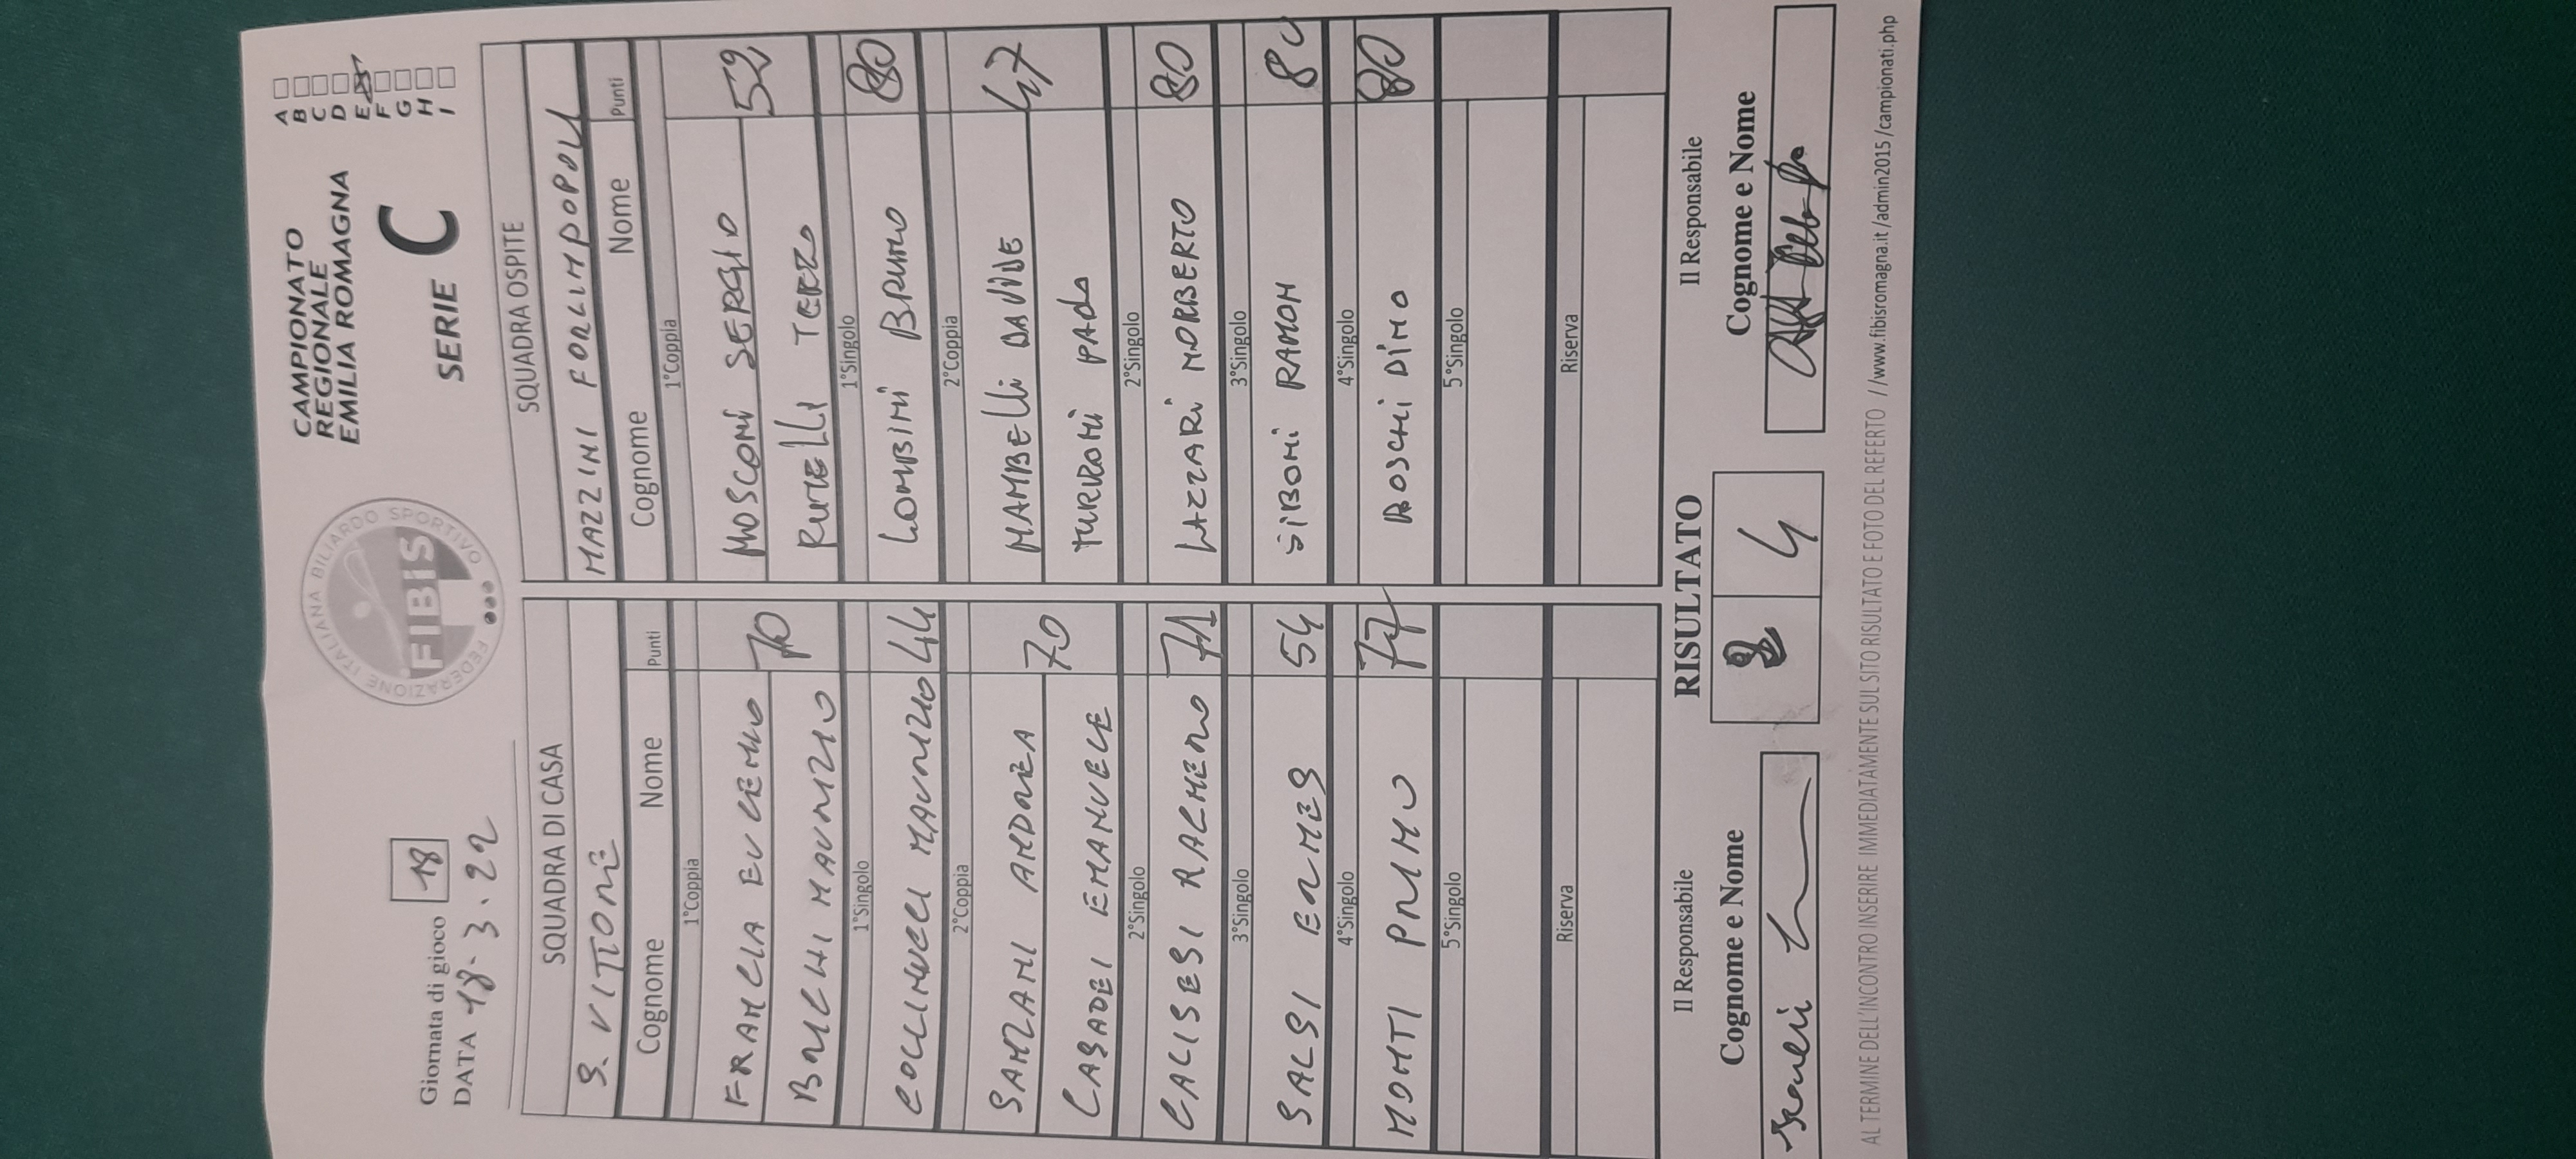 Giornata di gioco 18
DATA 18-3.22
FEDERAZIONE ITALIANA BILIARDO SPORTIVO
FIBiS
CAMPIONATO
REGIONALE
EMILIA ROMAGNA
SERIE C
A
B
C
D
E
F
G
H
I
SQUADRA DI CASA
S. VITTORE
Cognome Nome Punti
1°Coppia
FRANCIA EUGENIO 70
BRICCHI MAURIZIO
1°Singolo
COLLINUCCI MAURIZIO 44
2°Coppia
SANZANI ANDREA 70
CASADEI EMANUELE
2°Singolo
CALISESI RALMERO 71
3°Singolo
SALSI ERMES 54
4°Singolo
MONTI PRIMO 77
5°Singolo
Riserva
SQUADRA OSPITE
MAZZINI FORLIMPOPOLI
Cognome Nome Punti
1°Coppia
MOSCONI SERGIO 52
RUELLI TERZO
1°Singolo
LOMBINI BRUNO 80
2°Coppia
MAMBELLI DAVIDE 47
TURRONI PAOLO
2°Singolo
LAZZARI NORBERTO 80
3°Singolo
SIBONI RAMON 80
4°Singolo
BOSCHI DINO 80
5°Singolo
Riserva
Il Responsabile
Cognome e Nome
RISULTATO
2 4
Il Responsabile
Cognome e Nome
AL TERMINE DELL'INCONTRO INSERIRE IMMEDIATAMENTE SUL SITO RISULTATO E FOTO DEL REFERTO //www.fibisromagna.it /admin2015 /campionati.php